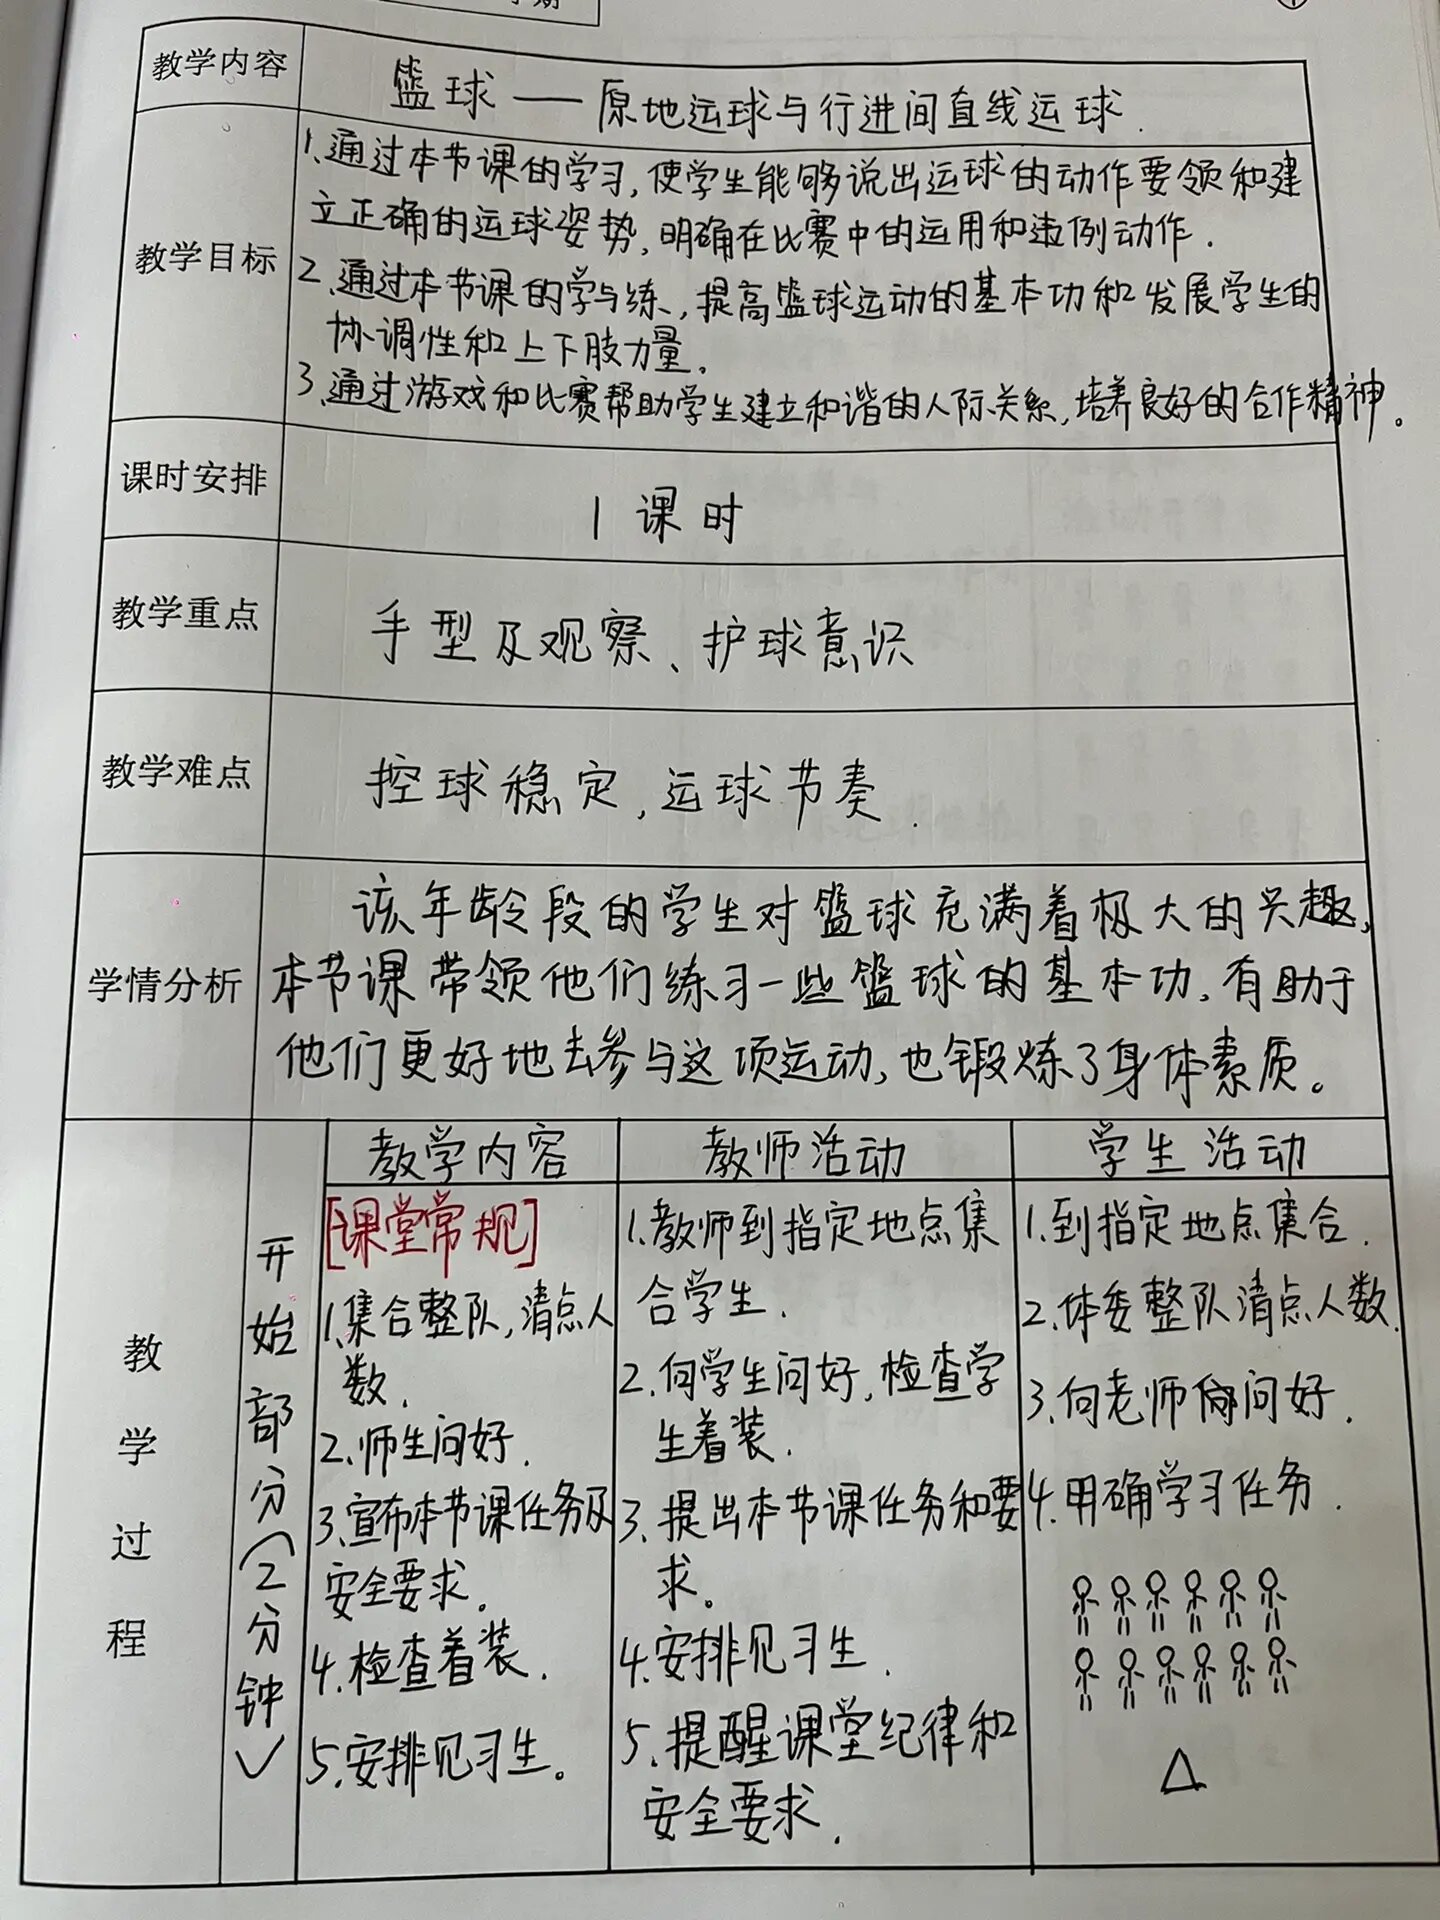 教学内容
篮球——原地运球与行进间直线运球.
教学目标
1.通过本节课的学习,使学生能够说出运球的动作要领和建
立正确的运球姿势,明确在比赛中的运用和违例动作.
2.通过本节课的学与练,提高篮球运动的基本功和发展学生的
协调性和上下肢力量。
3.通过游戏和比赛帮助学生建立和谐的人际关系,培养良好的合作精神。
课时安排
1课时
教学重点
手型及观察、护球意识
教学难点
控球稳定,运球节奏.
学情分析
该年龄段的学生对篮球充满着极大的兴趣,
本节课带领他们练习一些篮球的基本功,有助于
他们更好地去参与这项运动,也锻炼了身体素质。
教学过程
开始部分(2分钟)
教学内容
[课堂常规]
1.集合整队,清点人
数.
2.师生问好.
3.宣布本节课任务及
安全要求。
4.检查着装.
5.安排见习生。
教师活动
1.教师到指定地点集
合学生.
2.向学生问好,检查学
生着装.
3.提出本节课任务和要
求。
4.安排见习生.
5.提醒课堂纪律和
安全要求.
学生活动
1.到指定地点集合.
2.体委整队清点人数.
3.向老师问好.
4.明确学习任务.